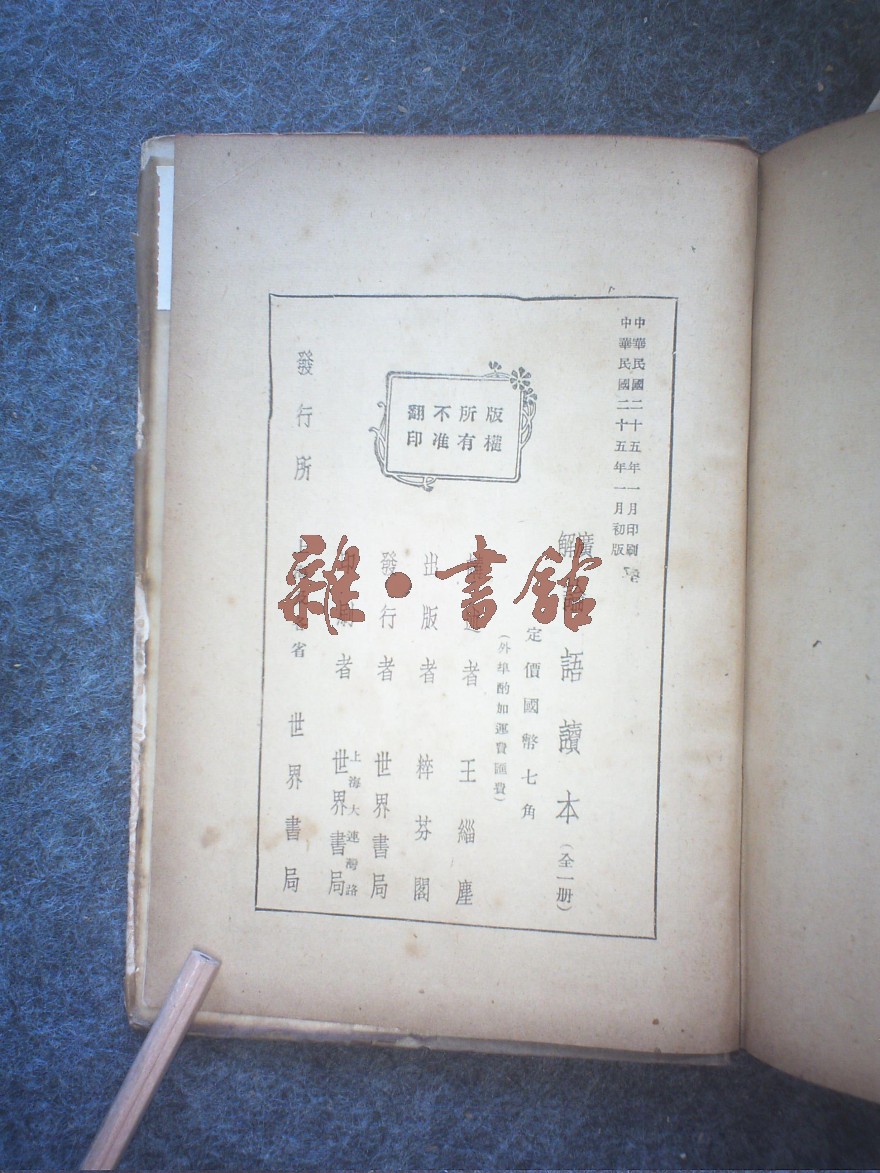 中華民國二十五年一月印刷
中華民國二十五年一月初版
廣解
論語讀本(全一册)
定價國幣七角
(外埠酌加運費匯費)
者 王緇塵
出版者 粹芬閣
發行者 世界書局
者 世界書局
上海大連灣路
發行所
省 世界書局
版權所有不准翻印
雜·書館